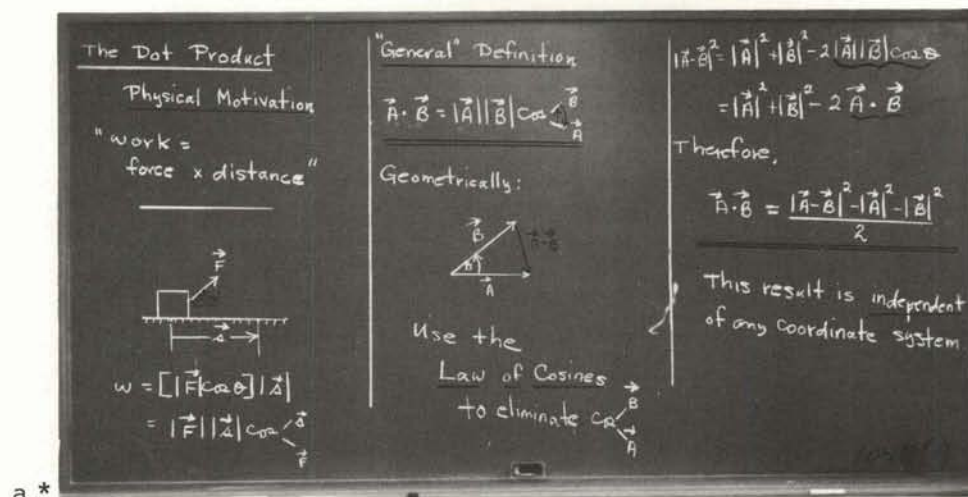 The Dot Product
Physical Motivation
"work =
force x distance"
F⃗
s⃗
w = [|F⃗|cos θ]|s⃗|
= |F⃗||s⃗| cos ∠ s⃗ F⃗
"General" Definition
A⃗ · B⃗ = |A⃗||B⃗| cos ∠ B⃗ A⃗
Geometrically:
B⃗
A⃗-B⃗
A⃗
Use the
Law of Cosines
to eliminate cos ∠ B⃗ A⃗
|A⃗-B⃗|² = |A⃗|² + |B⃗|² - 2|A⃗||B⃗|cos θ
= |A⃗|² + |B⃗|² - 2 A⃗ · B⃗
Therefore,
A⃗·B⃗ = (|A⃗-B⃗|² - |A⃗|² - |B⃗|²) / 2
This result is independent
of any coordinate system.
a *